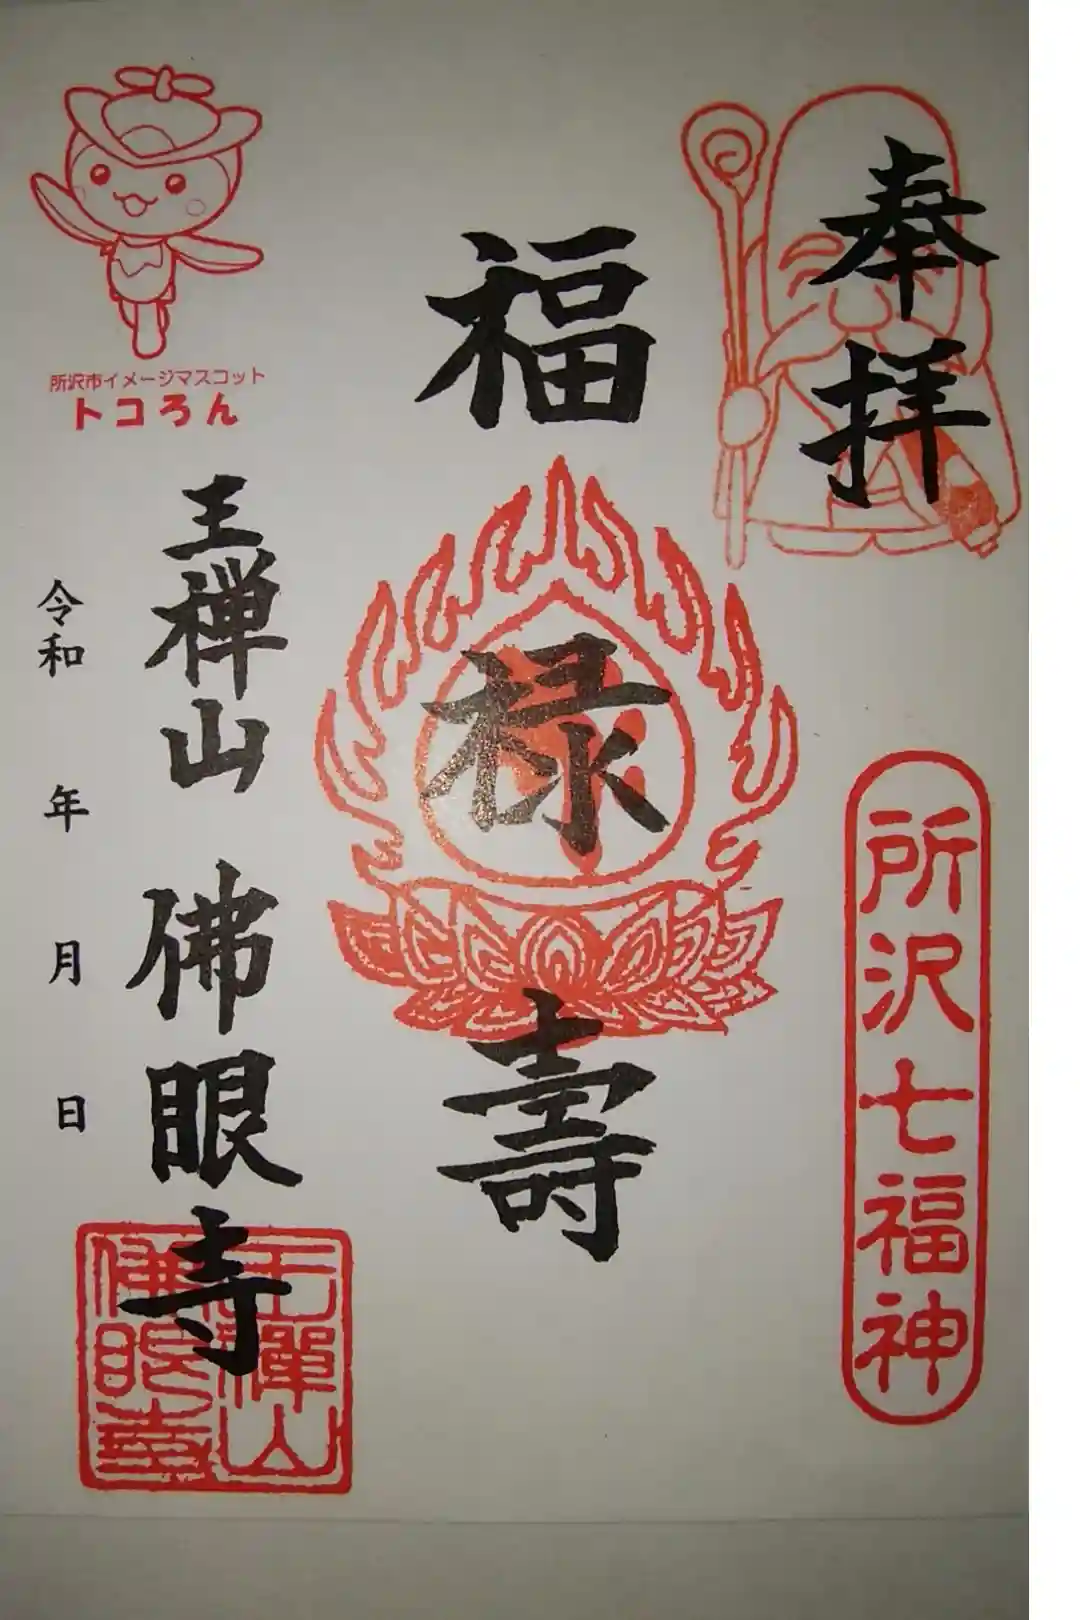 奉拝
所沢七福神
福禄壽
所沢市イメージマスコット
トコろん
王禅山 佛眼寺
王禪山
佛眼寺
令和 年 月 日